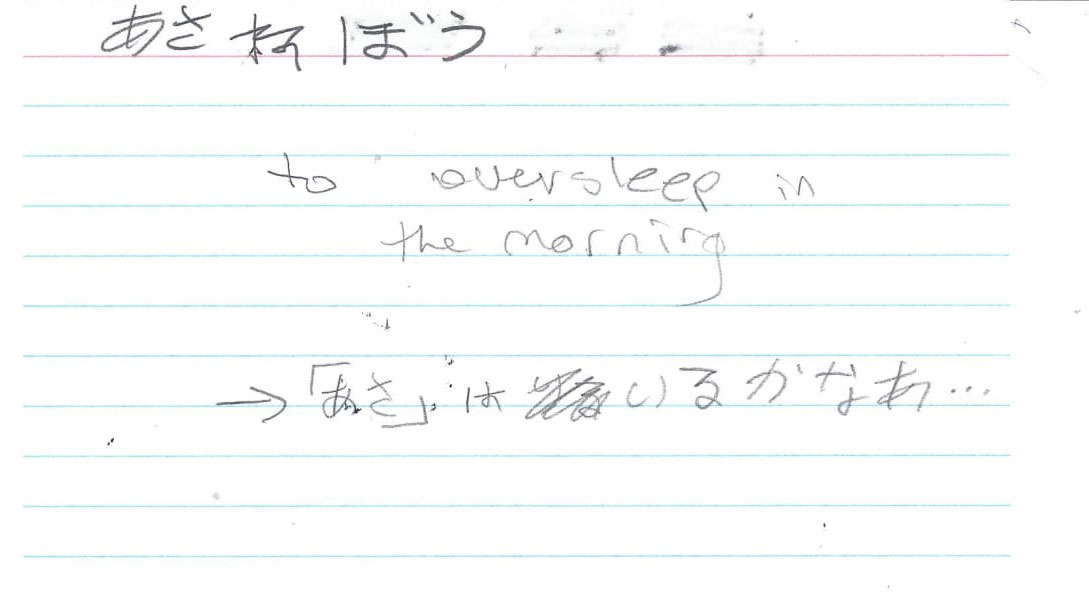 あさ杯ぼう
to oversleep in
the morning
→「あさ」は いるかなあ…